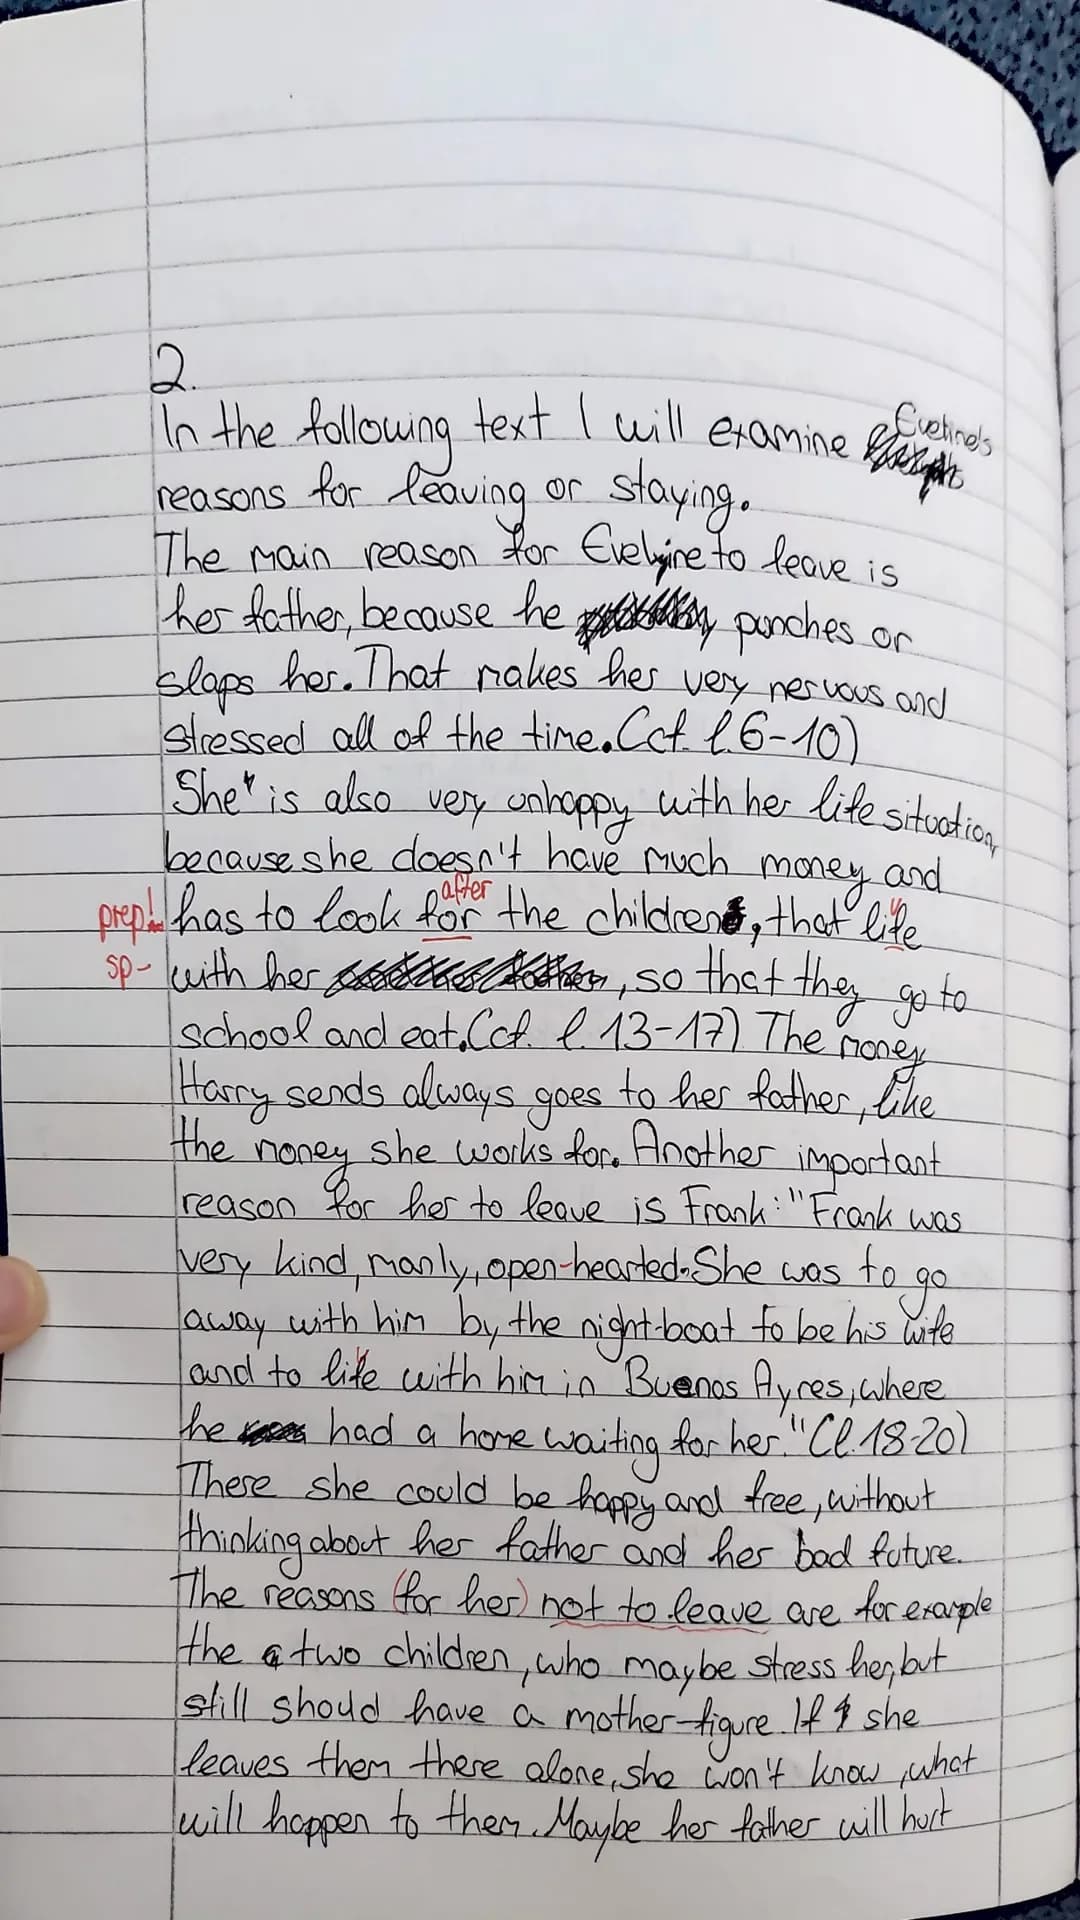 2.
In the following text I will examine Eveline's
reasons for leaving or staying.
The main reason for Eveline to leave is
her father, because he punches or
slaps her. That makes her very nervous and
stressed all of the time. (cf. l. 6-10)
She is also very unhappy with her life situation,
because she doesn't have much money and
prep! has to look for after the children, that life
sp- with her , so that they go to
school and eat. (cf. l. 13-17) The money
Harry sends always goes to her father, like
the money she works for. Another important
reason for her to leave is Frank: "Frank was
very kind, manly, open-hearted. She was to go
away with him by the night-boat to be his wife
and to life with him in Buenos Ayres, where
he had a home waiting for her." (l. 18-20)
There she could be happy and free, without
thinking about her father and her bad future.
The reasons (for her) not to leave are for example
the two children, who maybe stress her, but
still should have a mother-figure. If she
leaves them there alone, she won't know, what
will happen to them. Maybe her father will hurt